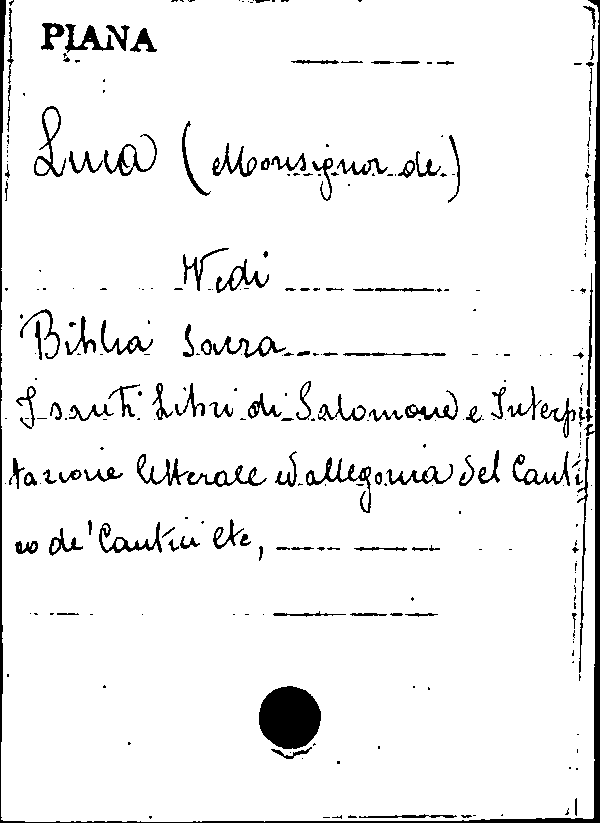 PIANA
Luca (Monsignor de)
Vedi
Biblia Sacra
I santi Libri di Salomone e Interpre
tazione letterale ed allegorica del Canti
co de' Cantici etc,